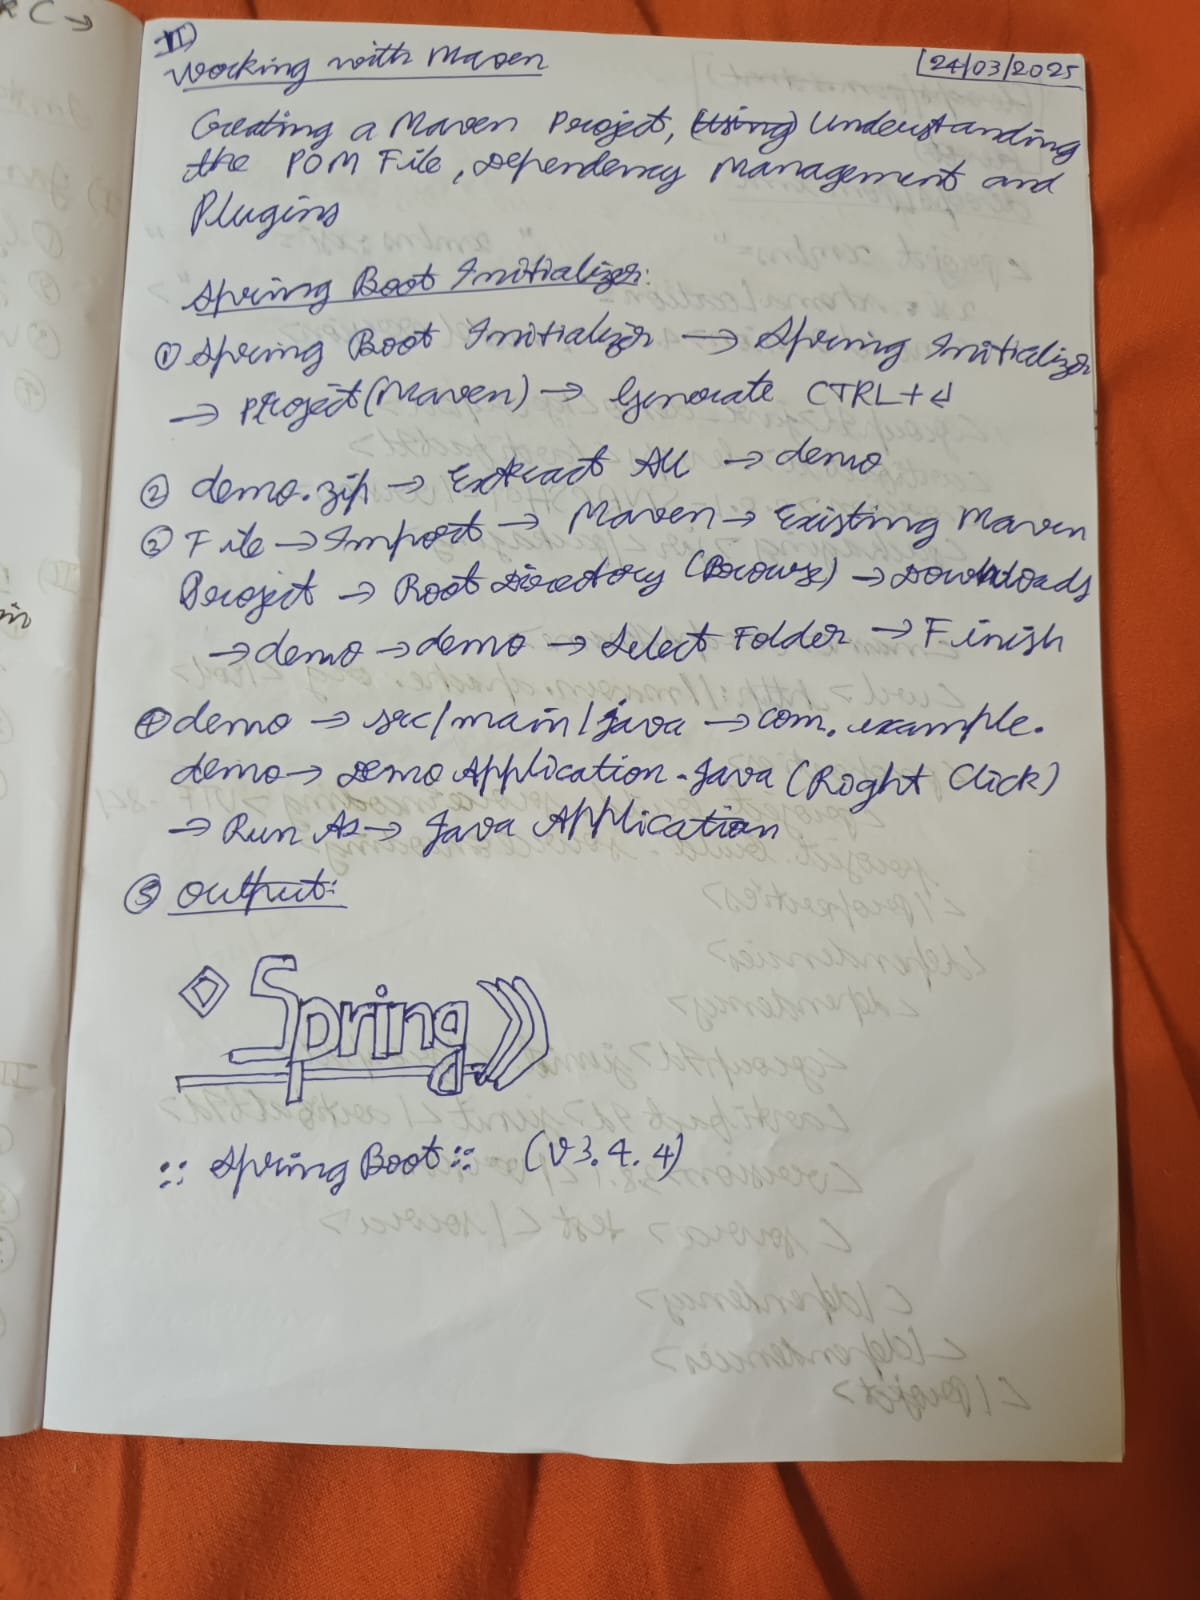 II)
Working with Maven
24/03/2025
Creating a Maven Project, (Using) Understanding
the POM File, Dependency Management and
Plugins
Spring Boot Initializr:
① Spring Boot Initializr → Spring Initializr
→ Project (Maven) → Generate CTRL+↵
② demo.zip → Extract All → demo
③ File → Import → Maven → Existing Maven
Project → Root Directory (Browse) → Downloads
→ demo → demo → Select Folder → Finish
④ demo → src/main/java → com.example.
demo → DemoApplication.java (Right Click)
→ Run As → Java Application
⑤ Output:
Spring
:: Spring Boot :: (v3.4.4)